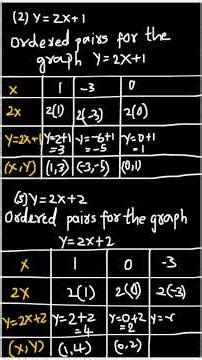 (2) Y = 2x+1
Ordered pairs for the
graph Y=2X+1
x 1 -3 0
2x 2(1) 2(-3) 2(0)
Y=2x+1 Y=2+1 =3 Y=-6+1 =-5 Y=0+1 =1
(x,y) (1,3) (-3,-5) (0,1)
(3) Y=2x+2
Ordered pairs for the graph
Y=2x+2
x 1 0 -3
2x 2(1) 2(0) 2(-3)
Y=2x+2 Y=2+2 =4 Y=0+2 =2
(x,y) (1,4) (0,2)